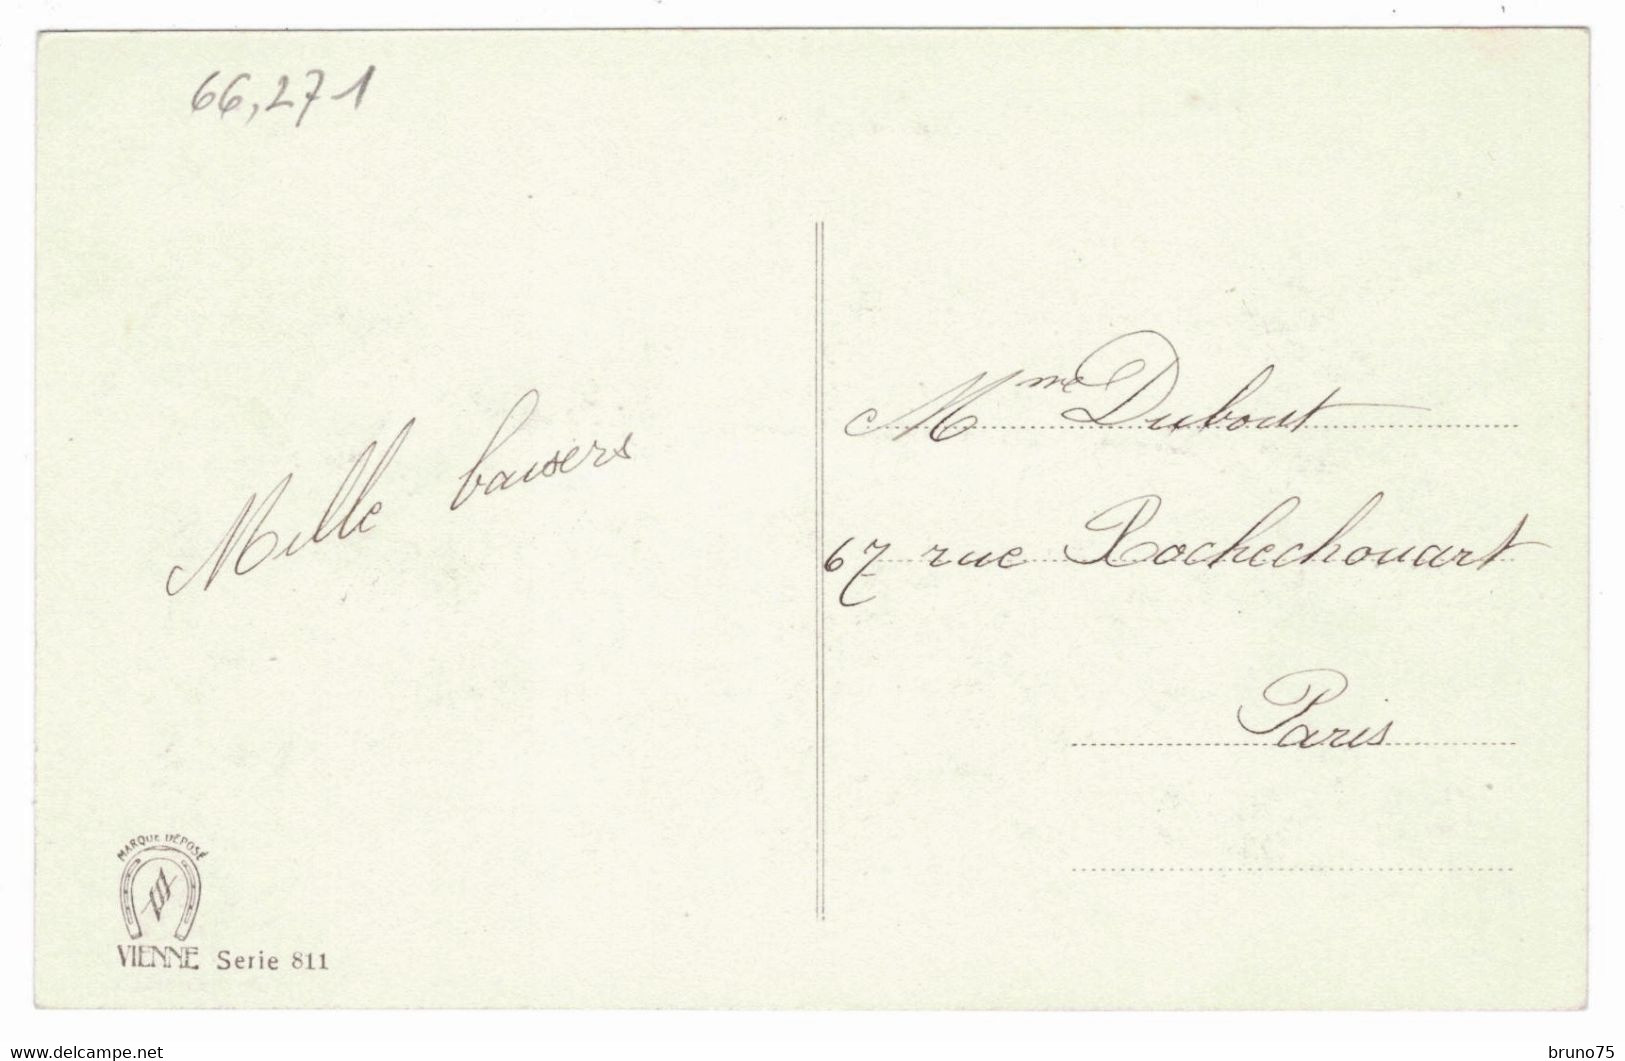 66,271
Mille baisers
Mme Dubout
67 rue Rochechouart
Paris
MARQUE DÉPOSÉ
VIENNE Serie 811
www.delcampe.net
bruno75